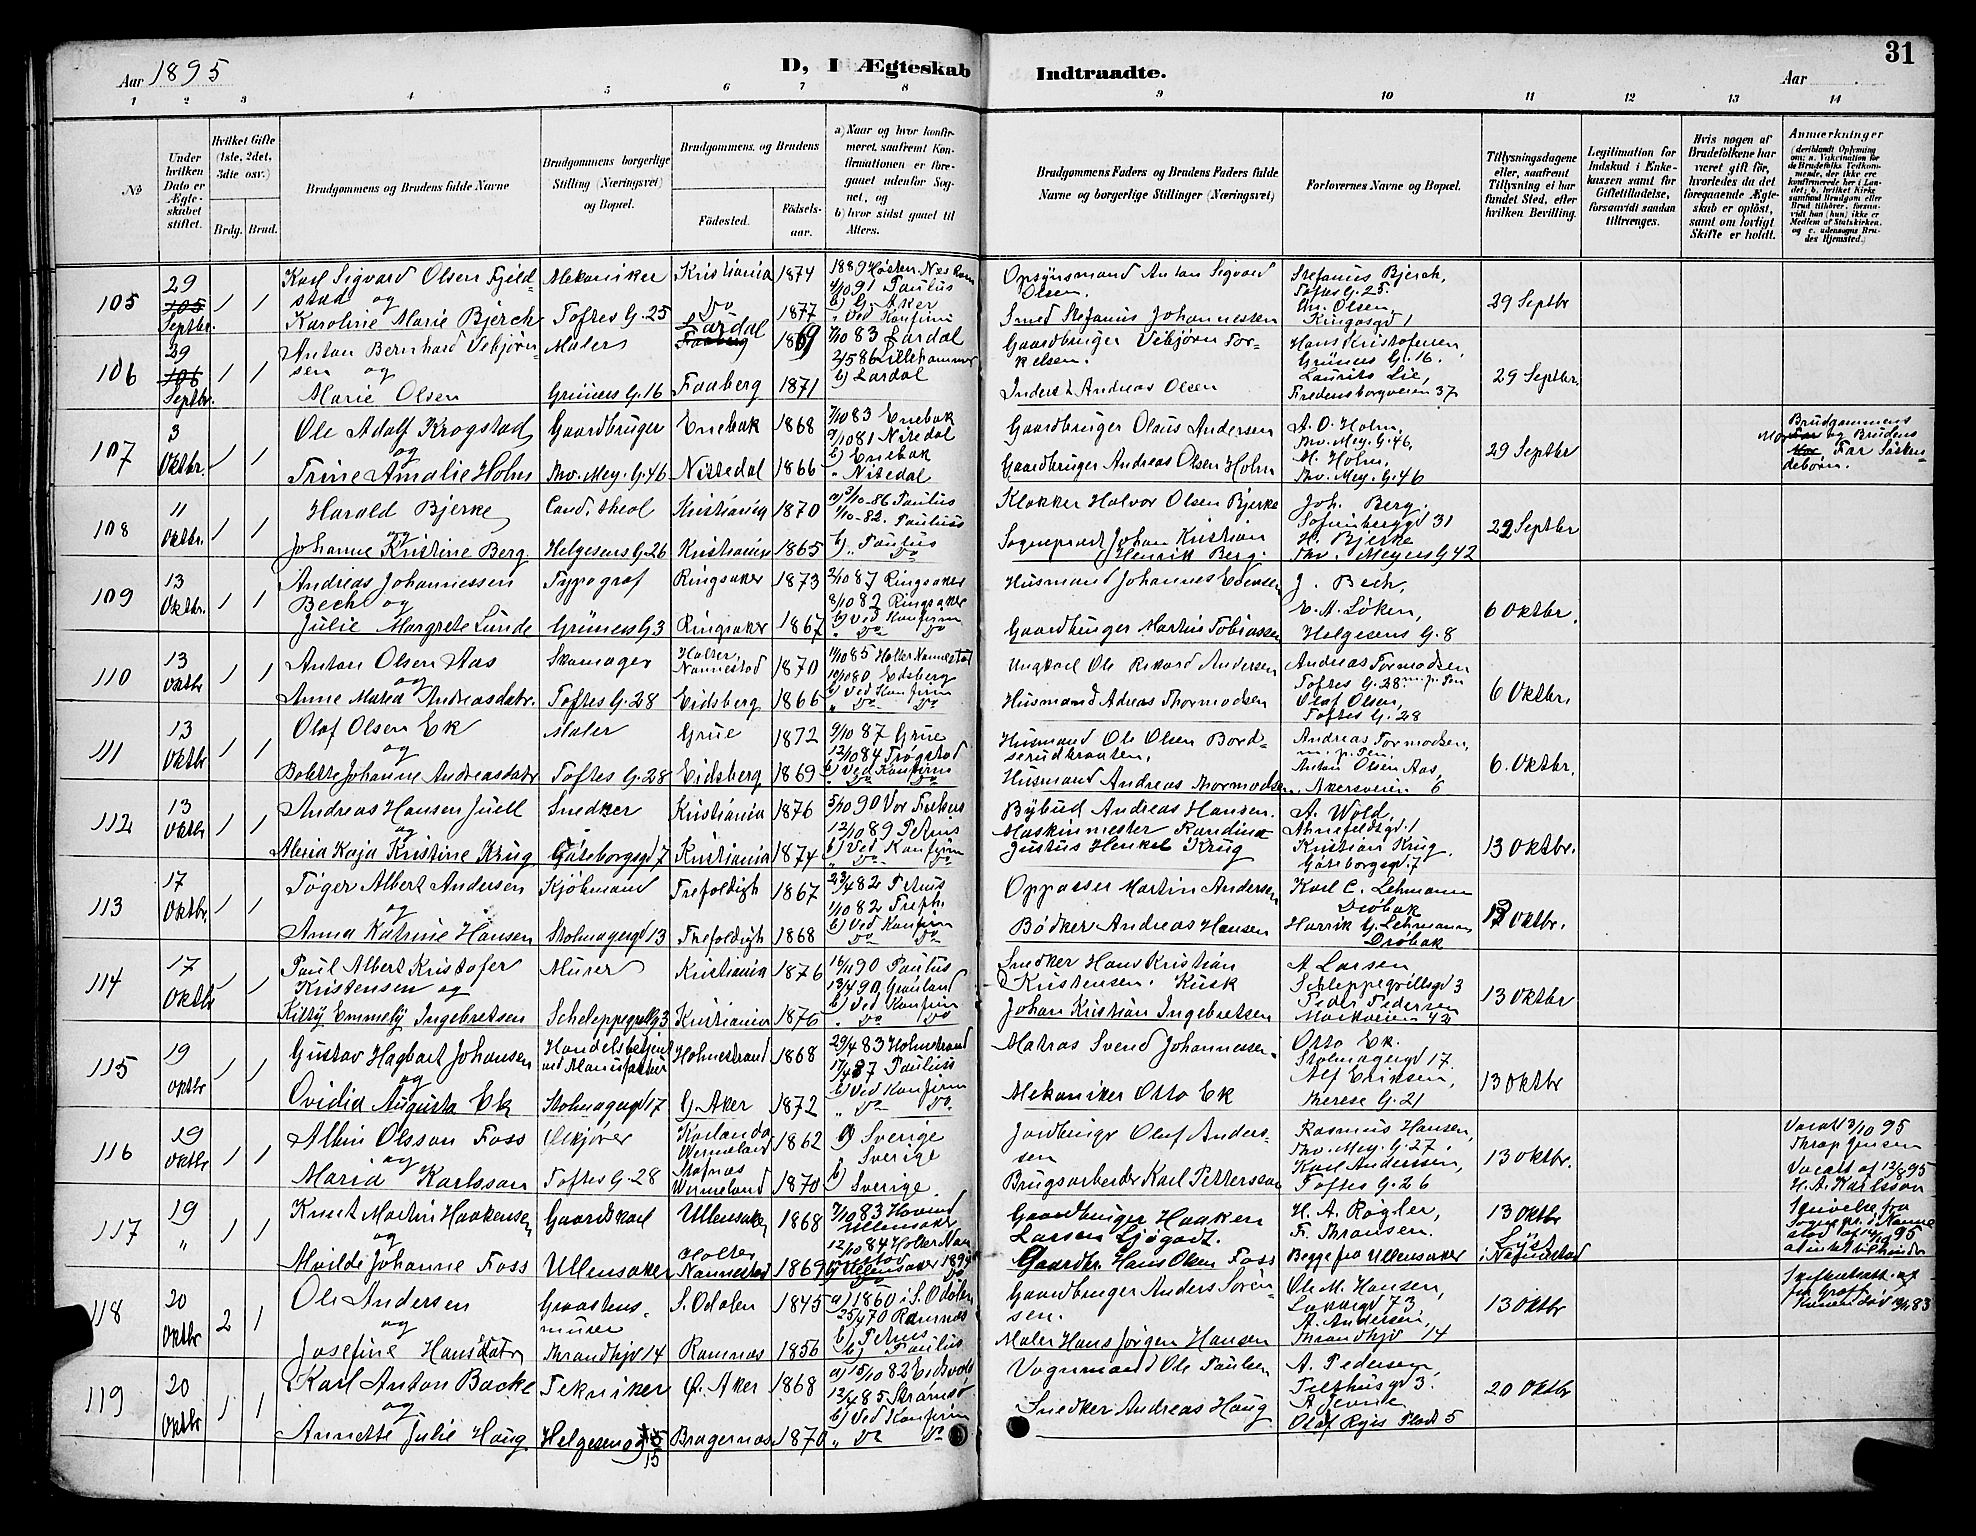 31
Aar 1895
D, I Ægteskab Indtraadte.
Aar
1 2 3 4 5 6 7 8 9 10 11 12 13 14
№
Under hvilken Dato er Ægteskabet stiftet.
Hvilket Gifte (1ste, 2det, 3die osv.)
Brdg. Brud.
Brudgommens og Brudens fulde Navne
Brudgommens borgerlige Stilling (Næringsvei) og Bopæl.
Brudgommens, og Brudens
Fødested.
Fødselsaar.
a) Naar og hvor konfirmeret, saafremt Konfirmationen er foregaaet udenfor Sognet, og
b) hvor sidst gaaet til Alters.
Brudgommens Faders og Brudens Faders fulde Navne og borgerlige Stillinger (Næringsvei)
Forlovernes Navne og Bopæl.
Tillysningsdagene eller, saafremt Tillysning ei har fundet Sted, efter hvilken Bevilling.
Legitimation for Indskud i Enkekassen samt for Giftetilladelse, forsaavidt saadan tiltrænges.
Hvis nogen af Brudefolkene har været gift før, hvorledes da det foregaaende Ægteskab er opløst, samt om lovligt Skifte er holdt.
Anmerkninger
105 29 Septbr. 1 1
Karl Sigvard Olsen Fjeldstad og
Karoline Marie Bjerch
Mekaniker
Toftes G. 25
Kristiania 1874
Do 1877
4/10 91 Paulus
b) G. Aker
" Ved Konfirm
Opsynsmand Anton Sigvard Olsen.
Smed Stefanus Johannessen
Stefanus Bjerch,
Toftes G. 25
Chr. Olsen,
Kingosgd 1
29 Septbr
106 29 Septbr. 1 1
Anton Bernhard Vebjørnsen og
Marie Olsen
Maler
Grüners G. 16
Lardal 1869
Faaberg 1871
7/10 83 Lardal
2/5 86 Lillehammer
b) Lardal
Gaardbruger Vebjørn Torkelsen.
Inderst Andreas Olsen
Hans Kristofersen,
Grüners G. 16.
Laurits Lie,
Fredensborgveien 37
29 Septbr.
107 3 Oktbr. 1 1
Ole Adolf Krogstad
og
Trine Amalie Holm
Gaardbruger
Thv. Mey. G. 46
Enebak 1868
Nittedal 1866
7/10 83 Enebak
9/10 81 Nitedal
b) Enebak
" Nitedal
Gaardbruger Olaus Andersen
Gaardbruger Andreas Olsen Holm
A. O. Holm,
Thv. Mey. G. 46,
M. Holm,
Thv. Mey. G. 46
29 Septbr
Brudgommens
Mor og Brudens
Far Søskendebørn.
108 11 Oktbr. 1 1
Harald Bjerke
og
Johanne Kristine Berg
Cand. theol
Helgesens G. 26
Kristiania 1870
Kristiania 1865
a) 3/10-86 Paulus
1/10-82. Paulus
b) " Paulus
Do
Klokker Halvor Olsen Bjerke
Sogneprest Johan Kristian Henrik Berg.
Joh. Berg.
Sofienberggd 31
H. Bjerke
Thv. Meyers G 42
29 Septbr
109 13 Oktbr. 1 1
Andreas Johannessen
Bech og
Julie Margrete Lunde
Typograf
Grüners G 3
Ringsaker 1873
Ringsaker 1867
2/10 87 Ringsaker
8/10 82 Ringsaker
b) Ved Konfirm
" Do Do
Husmand Johannes Edensen
Gaardbruger Martin Tobiassen
J. Bech,
E. A. Løken,
Helgesens G. 8
6 Oktbr.
110 13 Oktbr 1 1
Anton Olsen Aas
og
Anne Maria Andreasdatr.
Skomager
Toftes G. 28
Holter, Nannestad 1870
Eidsberg 1866
11/10 85 Holter Nannestad
10/10 80 Edsberg
b) Ved Konfirm
" Do Do
Ungkarl Ole Rikard Andersen
Husmand Adreas Thormodsen
Andreas Tormodsen
Toftes G. 28 m. p. Pen
Olaf Olsen,
Toftes G. 28
6 Oktbr.
111 13 Oktbr 1 1
Olaf Olsen Ek
og
Bolette Johanne Andreasdatr
Maler
Toftes G. 28
Grue 1872
Eidsberg 1869
9/10 87 Grue
12/10 84 Trøgstad
b) Ved Konfirm
Do Do
Husmand Ole Olsen Bordserudbraaten,
Husmand Andreas Thormodsen
Andreas Tormodsen,
m. p. Pen
Anton Olsen Aas,
Akersveien 6
6. Oktbr.
112 13 Oktbr 1 1
Andreas Hansen Juell
og
Maria Kaja Kristine Krug
Snedker
Gøteborgsgd 7
Kristiania 1876
Kristiania 1874
5/10 90 Vor Frelsers
12/10 89 Petrus
b) Ved Konfirm
" Do Do
Bybud Andreas Hansen.
Maskinmester Randina Justus Henkel Krug
A. Wold,
Ahnefeldtsgd. 1
Kristian Krug.
Gøteborgsgd. 7
13 Oktbr.
113 17 Oktbr. 1 1
Tøger Albert Andersen
og
Anna Katrine Hansen
Kjøbmand
Stolmagergd 13
Trefoldigh 1867
Trefoldigh 1868
23/4 82 Petrus
1/10 82 Trefh.
b) Ved Konfirm
Do Do
Oppasser Martin Andersen
Bødker Andreas Hansen
Karl C. Lehmann
Drøbak
Henrik G. Lehmann
Drøbak
13 Oktbr.
114 17 Oktbr 1 1
Paul Albert Kristofer
Kristensen og
Kitty Emmely Ingebretsen
Murer
Scheleppegrelg 3
Kristiania 1876
Kristiania 1876
16/11 90 Paulus
13/4 90, Grønland
b) Ved Konfirm
" Do Do
Snedker Hans Kristian Kristensen.
Kusk Johan Kristian Ingebretsen
A Larsen
Schleppegrellsgd 3
Peder Pedersen
Markveien 42
13 Oktbr
115 19 Oktbr 1 1
Gustav Hagbart Johansen
og
Ovidia Augusta Ek
Stolmagergd 17
Holmestrand 1868
G. Aker 1872
29/4 83 Holmestrand
17/4 87 Paulus
b) Ved Konfirm
" Do Do.
Matros Svend Johannessen.
Mekaniker Otto Ek
Otto Ek.
Stolmagergd 17.
Alf Eriksen,
Therese G. 21
13 Oktbr
116 19 Oktbr 1 1
Albin Olsson Foss
og
Maria Karlsson
Toftes G. 28
Karlanda Wermeland 1862
Wermeland 1870
a) Sverige
Sverige
b) Sverige.
Jordbruger Olaf Anderssen
Brugsarbeider Karl Pettersson
Rasmus Hansen,
Thv. Mey. G. 27.
Karl Anderssen,
Toftes G. 26
13 Oktbr.
Thrap Jensen
Vaccat af 12/9 95
H. A. Karlsson
117 19 " 1 1
Knut Martin Haakensen
og
Alvilde Johanne Foss
Gaardskarl
Ullensaker
Ullensaker 1868
Holter Nannestad 1869
7/10 83 Hovind
Ullensaker
12/10 84 Holter Nannestad
b) Ullensaker 1894
Do Do
Gaardbruger Haaken Larsen Ljøgodt.
Gaardbr. Hans Olsen Foss
H. A. Røgler,
Fr. Thransen.
Begge fra Ullensaker
13 Oktbr
Lyst
i Nannestad
118 20 Oktbr 2 1
Ole Andersen
og
Josefine Hansdatr
Graastensmurer
Thrandhjv 14
S. Odalen 1845
Ramnæs 1856
a) 1860 i S. Odalen
25/4 70 Ramnæs
b) Petrus
b) Paulus
Gaardbruger Anders Sørensen.
Maler Hans Jørgen Hansen
Ole M. Hansen,
A. Andersen,
Thrandhjv 14
13 Oktbr
119 20 Oktbr 1 1
Karl Anton Backe
og
Annette Julie Haug
Tekniker
Helgesensgd 15
Ø. Aker 1868
Bragernæs 1870
a) 15/10 82 Eidsvold
12/4 85 Strømsø
b) Ved Konfirm
" Do Do
Vognmand Ole Paulsen
Snedker Andreas Haug
A. Pedersen
Tilthusgd 3.
Olaf Ryes Plads 5
20 Oktbr